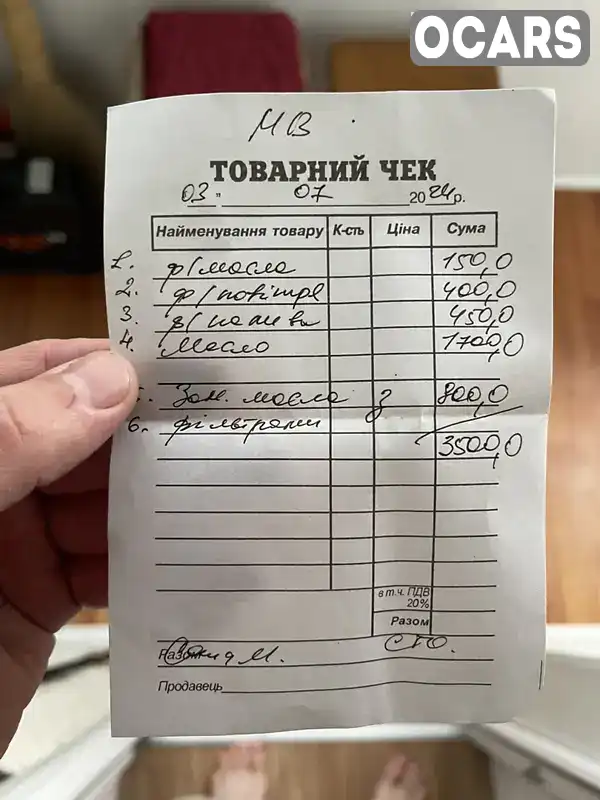 OCARS
МВ
ТОВАРНИЙ ЧЕК
03 " 07 2024р.
Найменування товару К-сть Ціна Сума
1. ф/масла 150,0
2. ф/повітря 400,0
3. ф/палива 450,0
4. Масло 1700,0
5. Зам. масла з 800,0
6. фільтрами
3500,0
в т.ч. ПДВ 20%
Разом
СТО.
Разом М.
Продавець